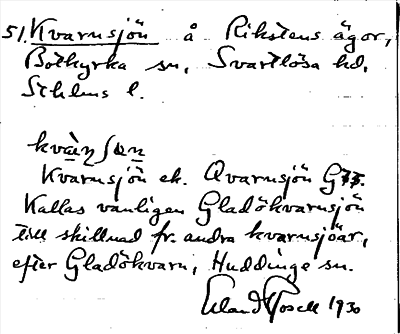 51. Kvarnsjön å Rikstens ägor,
Botkyrka sn, Svartlösa hd,
Sthlms l.
kvà̱ɳʃøn̲
Kvarnsjön ek. Qvarnsjön G
Kallas vanligen Gladökvarnsjön
till skillnad fr. andra kvarnsjöar,
efter Gladökvarn, Huddinge sn.
Erland Rosell 1930